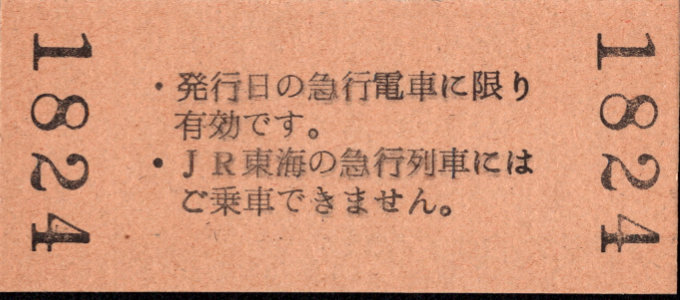 1824
・発行日の急行電車に限り
有効です。
・JR東海の急行列車には
ご乗車できません。
1824